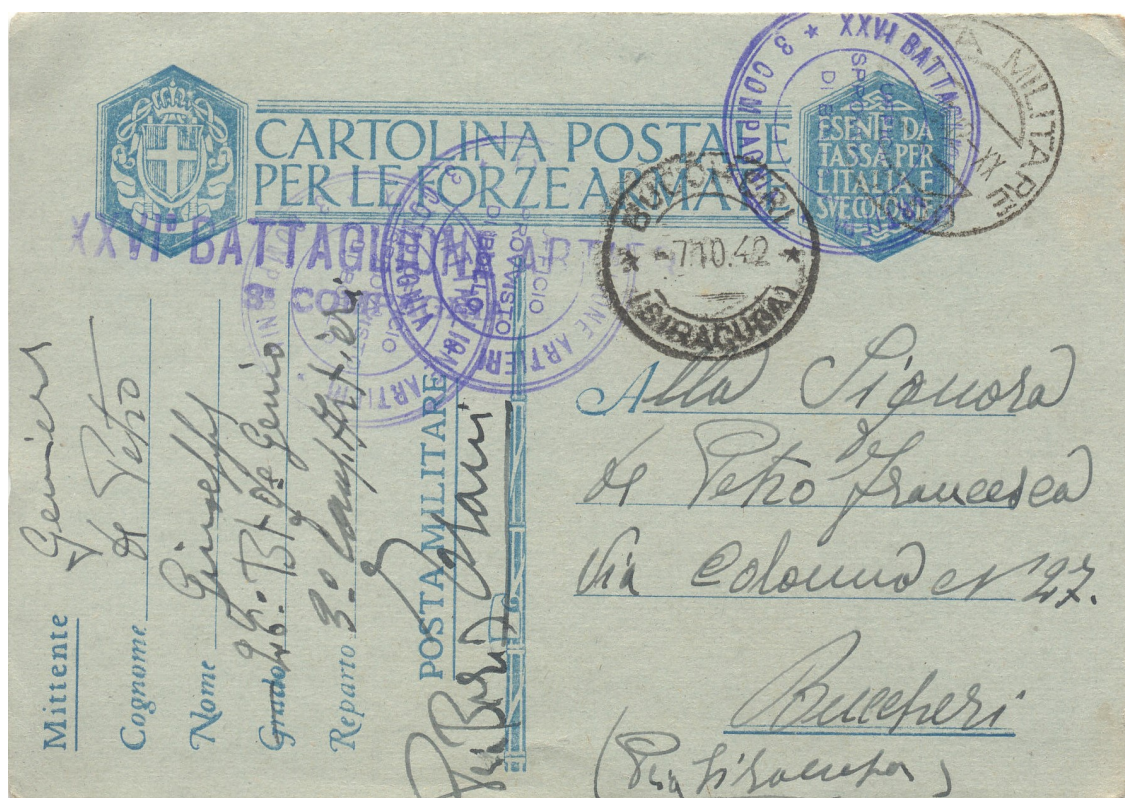 CARTOLINA POSTALE
PER LE FORZE ARMATE
ESENTE DA
TASSA PER
L'ITALIA E
SVE COLONIE
XXVI BATTAGLIONE
3 COMPAGNIA
POSTA MILITARE
XXVI° BATTAGLIONE ARTIERI
3ª COMPAGNIA
UFFICIO
SPROVVISTO
DI BOLLO
BUCCHERI
-7.10.42
(SIRACUSA)
Alla Signora
de Petro Francesca
Via Colonna N 27.
Buccheri
(Pria Siracusa)
Mittente Geniere
Cognome de Petro
Nome Giuseppe
Grado 26º Bt. Genio
Reparto 3º Comp. Artieri
POSTA MILITARE Trani
Bari